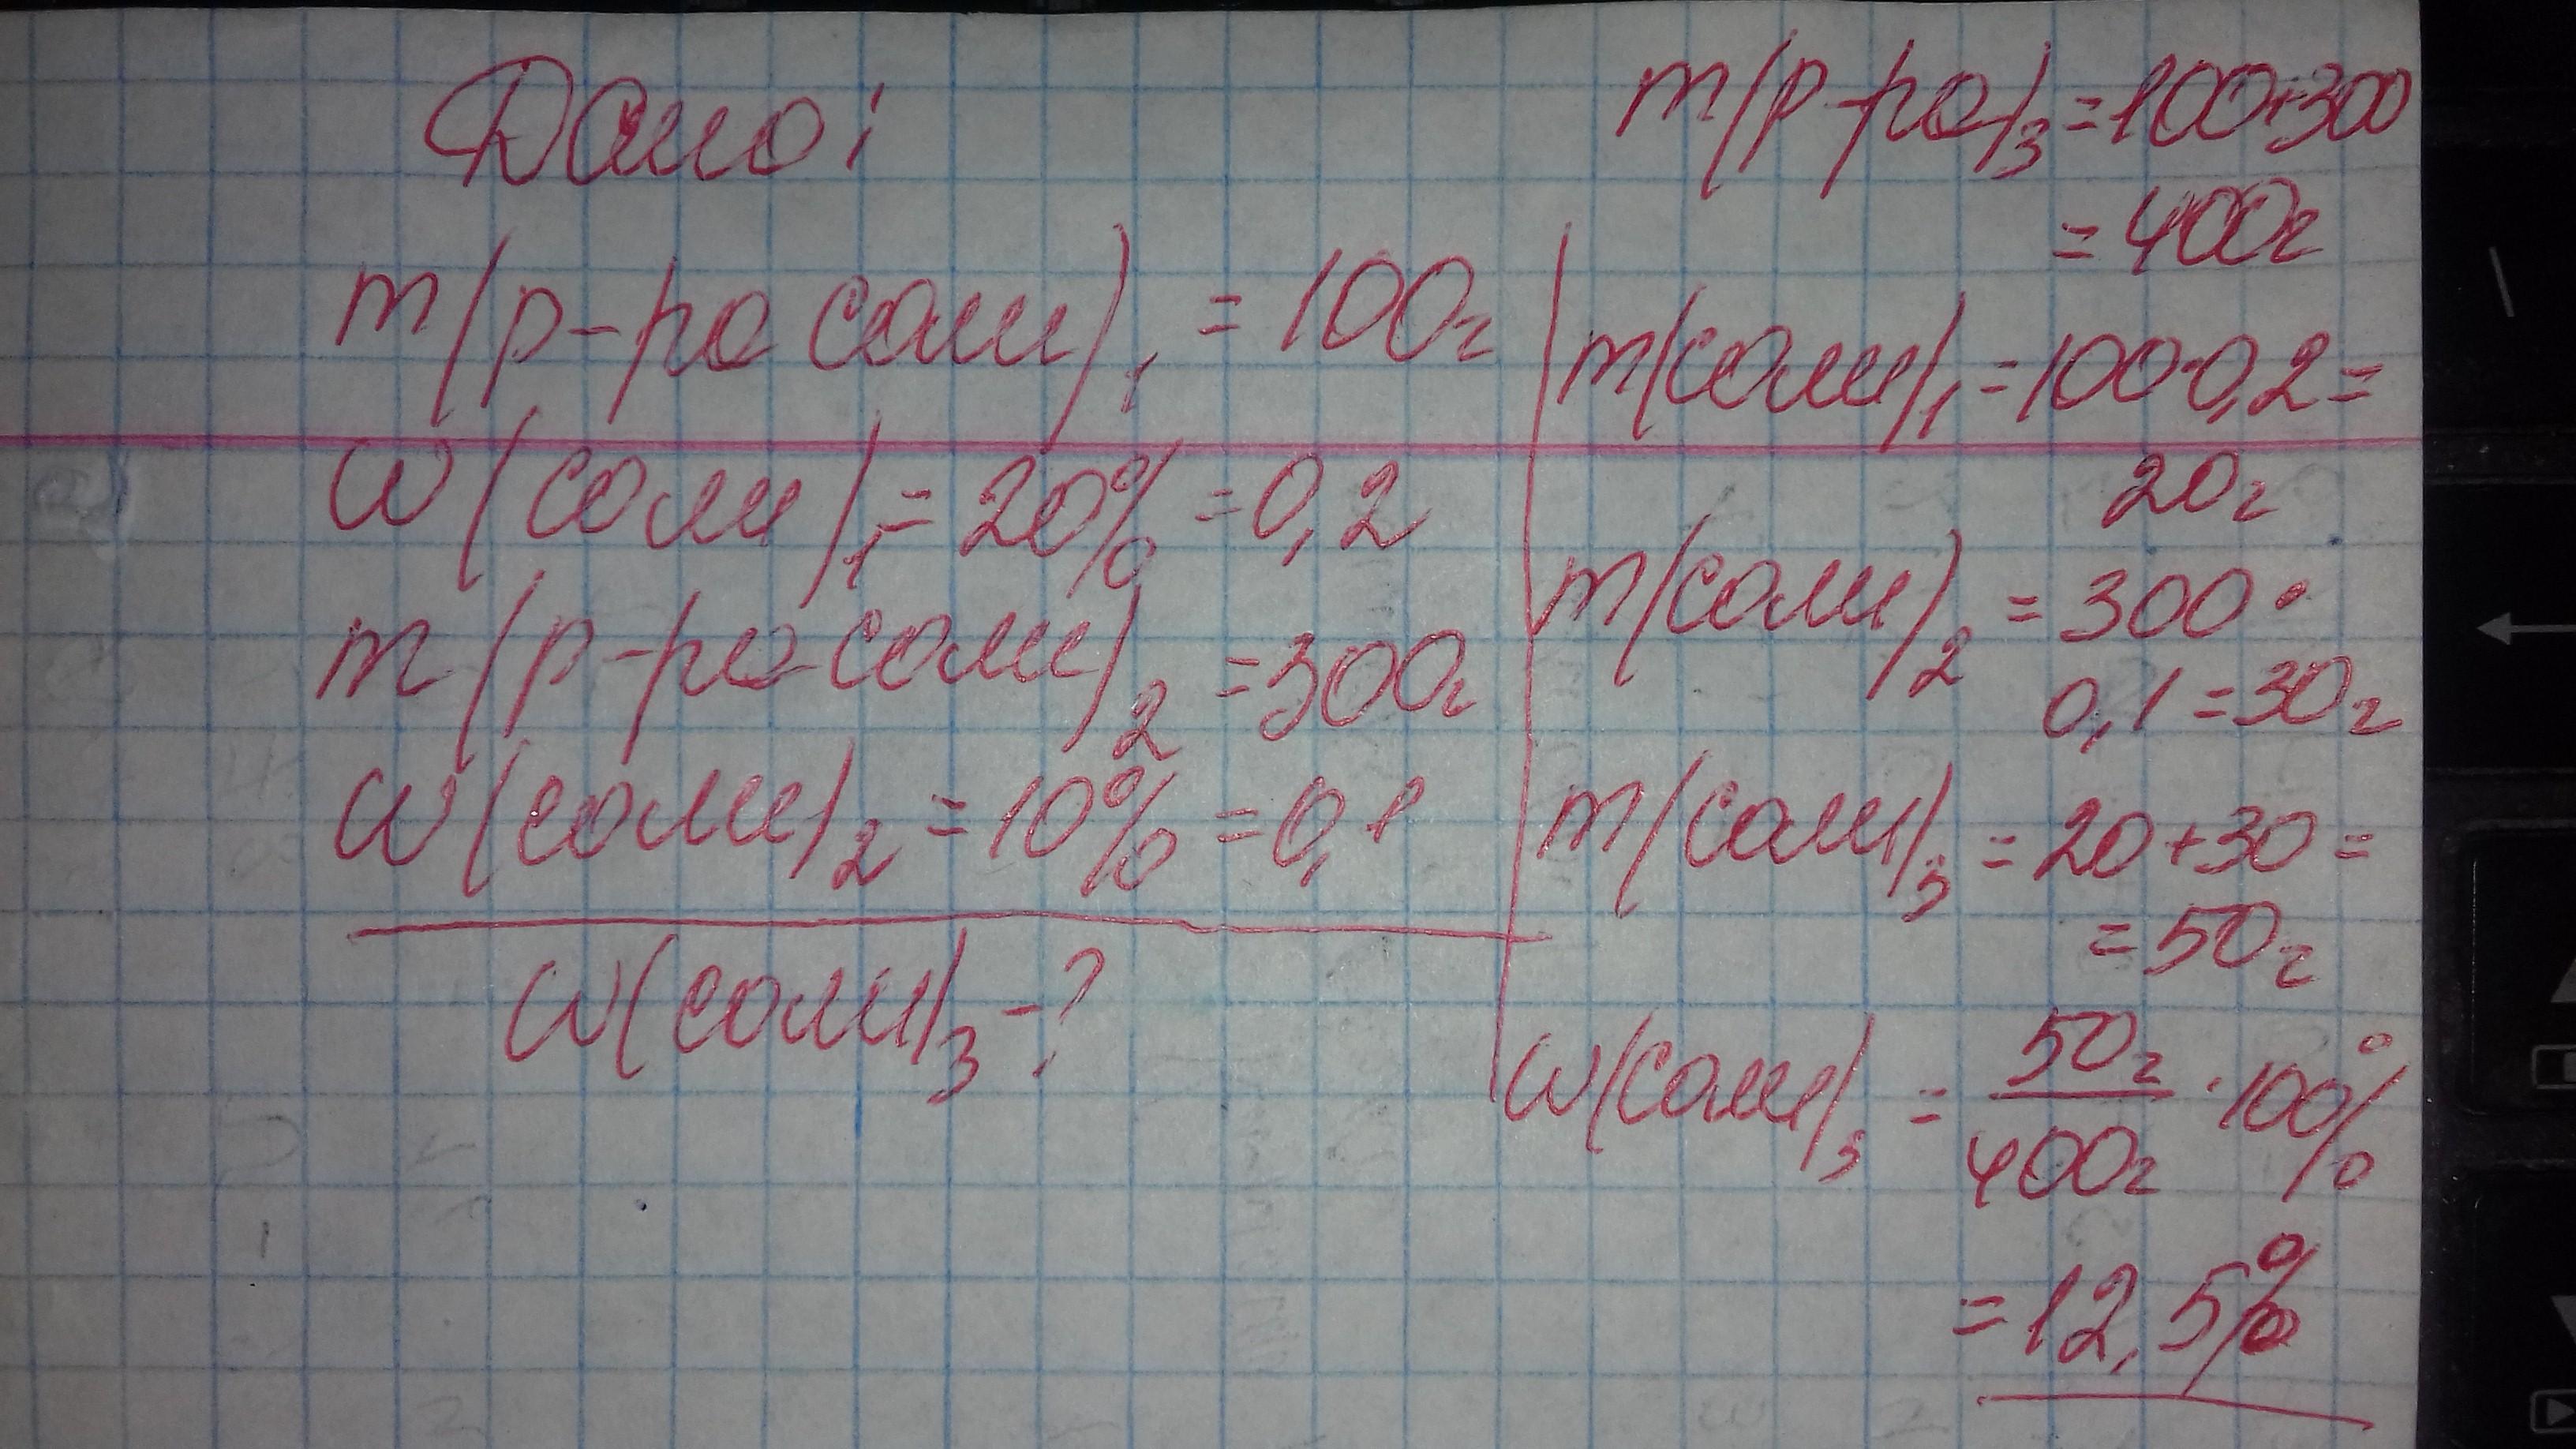 Дано:
m(р-ра соли)₁ = 100г
w(соли)₁ = 20% = 0,2
m(р-ра соли)₂ = 300г
w(соли)₂ = 10% = 0,1
w(соли)₃ - ?
m(р-ра)₃ = 100+300
= 400г
m(соли)₁ = 100·0,2 =
20г
m(соли)₂ = 300 ·
0,1 = 30г
m(соли)₃ = 20 + 30 =
= 50г
w(соли)₃ = 50г/400г · 100%
= 12,5%